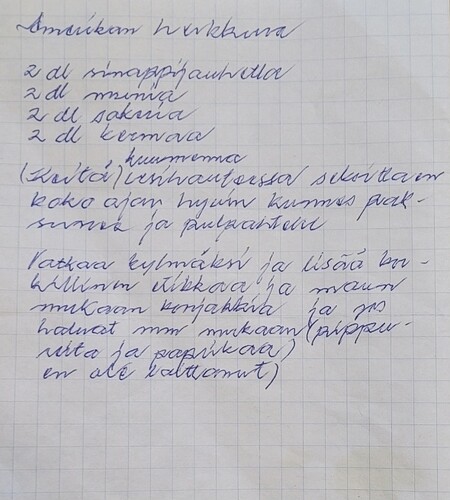 Amerikan herkkua
2 dl sinappijauhetta
2 dl munia
2 dl sokria
2 dl kermaa
kuumenna
(Keitä) vesihauteessa sekoittaen
koko ajan hyvin kunnes pak-
sunee ja pulpahtelee
Vatkaa kylmäksi ja lisää ku-
etikkaa ja maun
mukaan konjakkia ja jos
haluat mm mukaan (pippu-
rita ja paprikaa)
en ole laittanut)